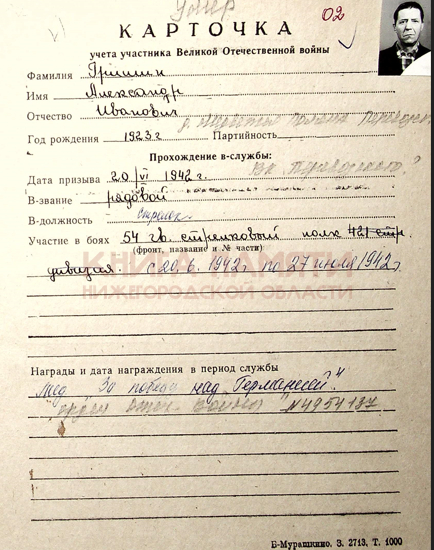 Умер
02
КАРТОЧКА
учета участника Великой Отечественной войны
Фамилия Гришин
Имя Александр
Отчество Иванович
Год рождения 1923 г Партийность
Прохождение в-службы:
Дата призыва 20/VI 1942 г.
В-звание рядовой
В-должность Стрелок
Участие в боях 54 гв. стрелковый полк 421 стр.
(фронт, название и № части)
дивизия. с 20.6.1942 г по 27 июля 1942 г.
КНИГА ПАМЯТИ
НИЖЕГОРОДСКОЙ ОБЛАСТИ
Награды и дата награждения в период службы
Мед. За победу над Германией"
"орден Отеч Войны" N4954187
Б-Мурашкино. З. 2713, Т. 1000